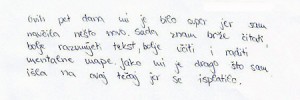 ovih pet dana mi je bilo super jer sam
naučila nešto novo. Sada znam brže čitati
bolje razumijeti tekst, bolje učiti i raditi
mentalne mape. Jako mi je drago što sam
išla na ovaj tečaj jer se isplatilo.